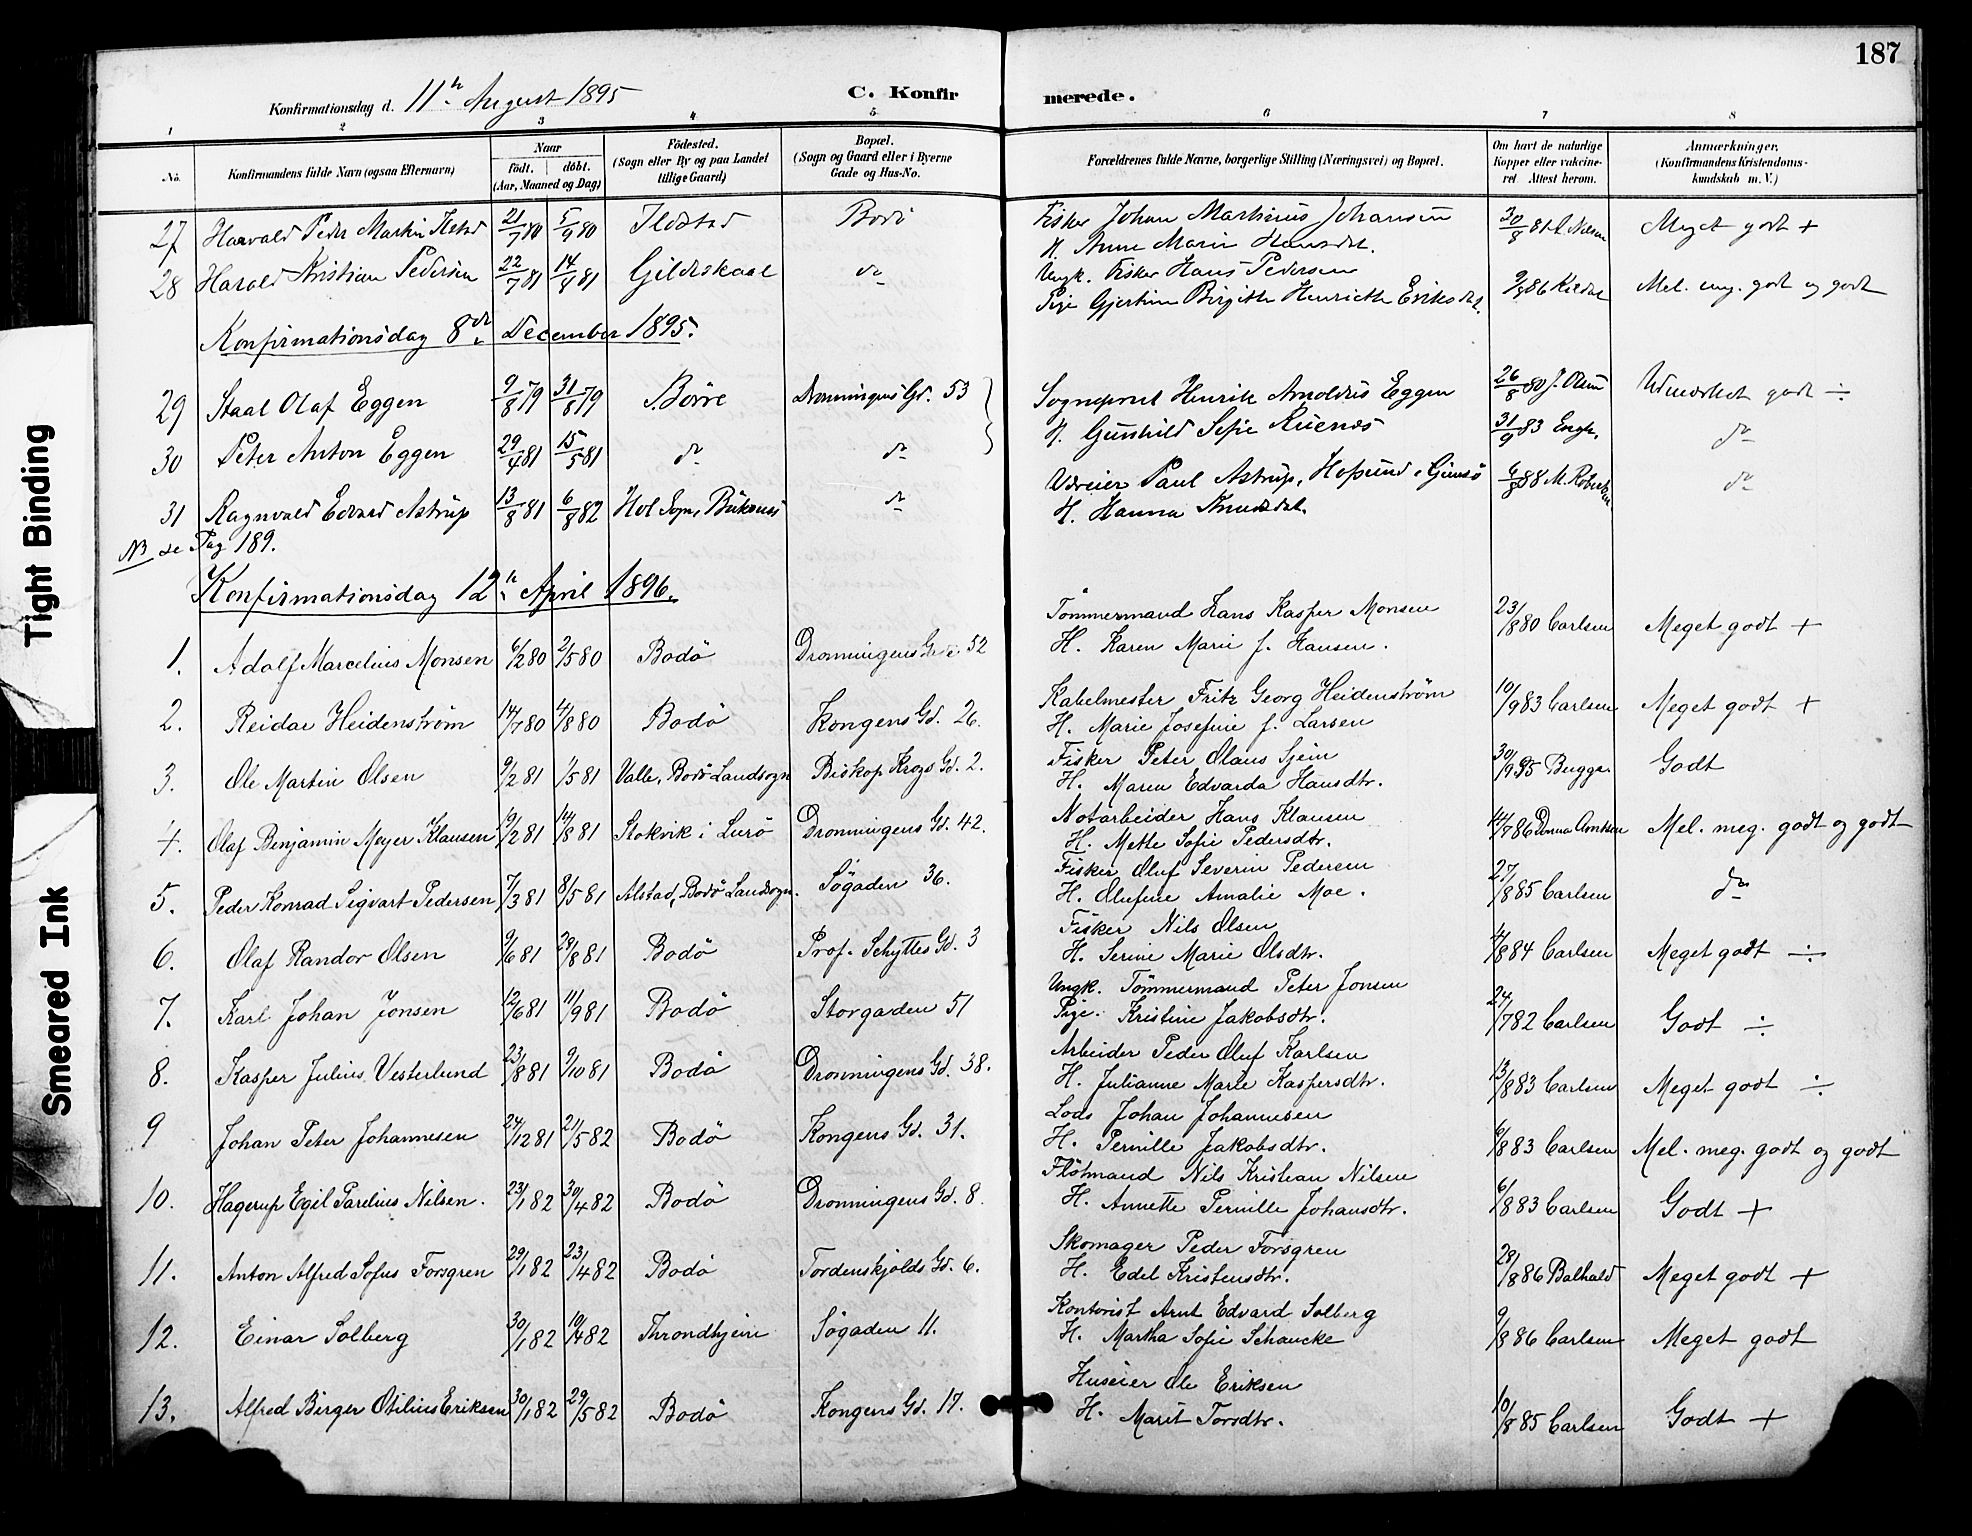 187
Konfirmationsdag d. 11te August 1895
C. Konfir merede.
1 2 3 4 5 6 7 8
No. Konfirmandens fulde Navn (ogsaa Efternavn) Naar født. døbt. (Aar, Maaned og Dag) Fødested. (Sogn eller By og paa Landet tillige Gaard) Bopæl. (Sogn og Gaard eller i Byerne Gade og Hus-No. Forældrenes fulde Navne, borgerlige Stilling (Næringsvei) og Bopæl. Om havt de naturlige Kopper eller vakcineret. Attest herom. Anmærkninger. (Konfirmandens Kristendomskundskab m. V.)
27 Harvald Peder Martin 21/7 80 5/9 80 Ildstad Bodö Fisker Johan Martinus Johansen 30/8 81 A. Nilsen Meget godt +
H. Anne Marie Hansdat.
28 Harald Kristian Pedersen 22/7 81 14/9 81 Gildeskaal do Ungk. Fisker Hans Pedersen 9/8 86 Mel. meg. godt og godt
Pige Gjertine Birgitte Henriette Eriksdat.
Konfirmationsdag 8de December 1895.
29 Staal Olaf Eggen 9/8 79 31/8 79 Börre Dronningens Gd. 53 Sogneprest Henrik Arnoldus Eggen 26/8 80 J. Olsen Udmærket godt ÷
H. Gunhild Sofie
30 Peter Anton Eggen 29/4 81 15/5 81 do do 31/9 83 Engh. do
31 Ragnvald Edvard Astrup 13/8 81 6/8 82 Hol Sogn, Buksnæs do Væreier Paul Astrup, Hopsund i Gimsö 6/8 88 M. do
H. Hanna
NB se Pag 189.
Konfirmationsdag 12te April 1896.
1. Adolf Marcelius Monsen 6/2 80 2/5 80 Bodö Dronningens Gade 52 Tömmermand Hans Kasper Monsen 23/8 80 Carlsen Meget godt +
H. Karen Marie f. Hansen.
2. Reidar Heidenström 14/7 80 4/8 80 Bodö Kongens Gd. 26. Kabelmester Fritz Georg Heidenström 10/9 83 Carlsen Meget godt +
H. Marie Josefine f. Larsen
3. Ole Martin Olsen 9/2 81 1/5 81 Valle, Bodö Landsogn Biskop Krogs Gd. 2. Fisker Peter Olaus 30/9 95 Bugge. Godt
H. Maren Edvarda Hansdtr.
4. Olaf Benjamin Meyer Klausen 19/2 81 14/8 81 Stokvik i Lurö Dronningens Gd. 42. Notarbeider Hans Klausen 14/7 86 Mel. meg. godt og godt
H. Mette Sofie Pedersdtr.
5. Peder Konrad Sigvart Pedersen 7/3 81 8/5 81 Alstad, Bodö Landsogn. Søgaden 36. Fisker Oluf Severin Pedersen 27/8 85 Carlsen do
H. Olufine Amalie Moe.
6. Olaf Randor Olsen 9/6 81 28/8 81 Bodö Prof. Schyttes Gd. 3 Fisker Nils Olsen 4/8 84 Carlsen Meget godt ÷
H. Serine Marie Olsdtr.
7. Karl Johan Jonsen 12/6 81 11/9 81 Bodö Storgaden 51 Ungk. Tömmermand Peter Jonsen 24/7 82 Carlsen Godt ÷
Pige. Kristine Jakobsdtr.
8. Kasper Julius Vesterlund 23/8 81 9/10 81 Bodö Dronningens Gd. 38. Arbeider Peder Oluf Karlsen 13/8 83 Carlsen Meget godt ÷
H. Julianne Marie Kaspersdtr.
9 Johan Peter Johannesen 24/12 81 21/5 82 Bodö Kongens Gd. 31. Lods Johan Johannesen 6/8 83 Carlsen Mel. meg. godt og godt
H. Pernille Jakobsdtr.
10. Hagerup Egil Parelius Nilsen. 23/1 82 30/4 82 Bodö Dronningens Gd. 8. Flötmand Nils Kristian Nilsen 6/8 83 Carlsen Godt +
H. Annette Pernille Johansdtr.
11. Anton Alfred Sofus Forsgren 29/1 82 23/4 82 Bodö Tordenskjolds Gd. 6. Skomager Peder Forsgren 28/8 86 Meget godt +
H. Edel Kristensdtr.
12. Einar Solberg 30/1 82 10/4 82 Throndhjem Søgaden 11. Kontorist Arnt Edvard Solberg 9/8 86 Carlsen Meget godt
H. Martha Sofie Schancke
13. Alfred Birger Otilius Eriksen 30/1 82 29/5 82 Bodö Kongens Gd. 17. Huseier Ole Eriksen 10/8 85 Carlsen Godt +
H. Marit Torsdtr.
Tight Binding
Smeared Ink